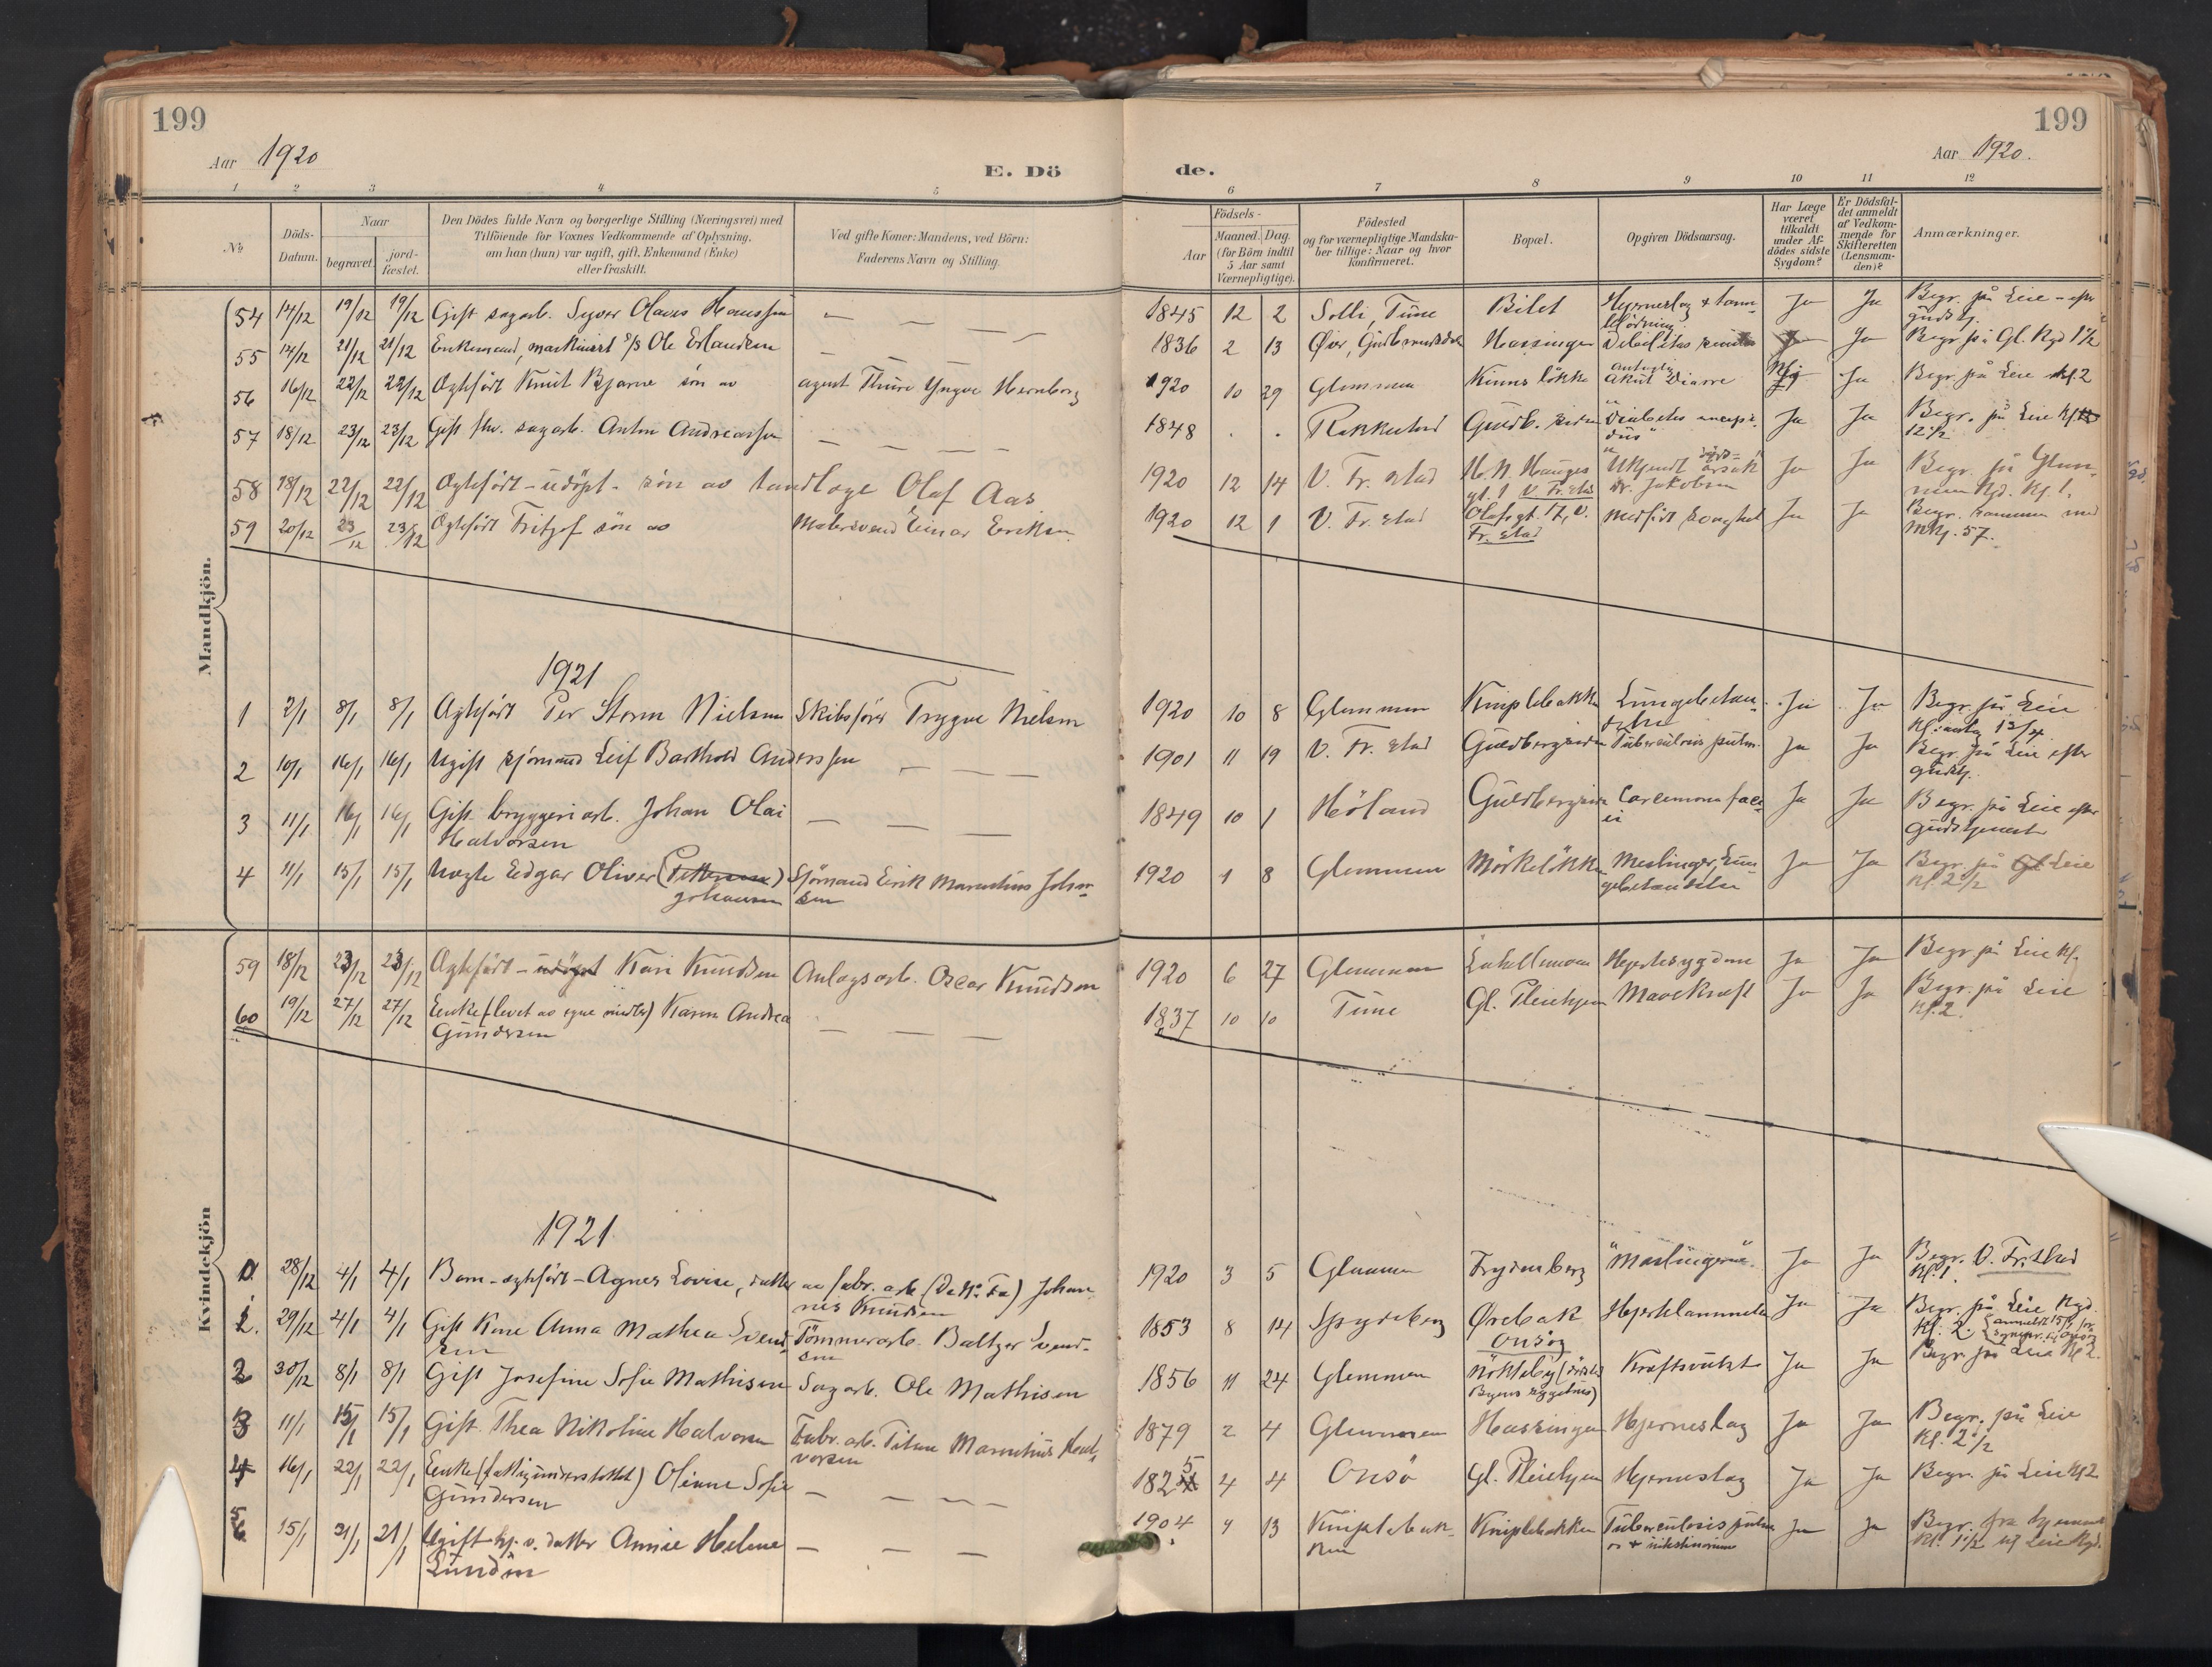 199
199
Aar 1920
E. Dö
de.
Aar 1920.
1 2 3 4 5 6 7 8 9 10 11 12
No
Döds-
Datum.
Naar
begravet.
jord-
fæstet.
Den Dödes fulde Navn og borgerlige Stilling (Næringsvei) med
Tilföiende for Voxnes Vedkommende af Oplysning,
om han (hun) var ugift, gift, Enkemand (Enke)
eller fraskilt.
Ved gifte Koner: Mandens, ved Börn:
Faderens Navn og Stilling.
Födsels-
Aar
Maaned. Dag.
(for Börn indtil
5 Aar samt
Værnepligtige).
Födested
og for værnepligtige Mandska-
ber tillige: Naar og hvor
konfirmeret.
Bopæl.
Opgiven Dödsaarsag.
Har Læge
været
tilkaldt
under Af-
dödes sidste
Sygdom?
Er Dödsfal-
det anmeldt
af Vedkom-
mende for
Skifteretten
(Lensman-
den)?
Anmærkninger.
Mandkjön.
54 14/12 19/12 19/12 Gift sagarb. Syver Olaves Hanssen — — — — 1845 12 2 Solli, Tune Bilet Hjerneslag Ja Ja Begr. på Leie - efter
gudstj.
55 14/12 21/12 21/12 Enkemand, maskinist Ole Erlandsen — — — — 1836 2 13 Hassingen Debilitas Ja Begr. på Gl. Kgd 1½
56 16/12 22/12 22/12 Ægtefødt Knut Bjarne søn av agent Thure Yngve Hernborg 1920 10 29 Glemmen Kinnsløkka akut Diarre Nei Ja Begr. på Leie kl. 2
57 18/12 23/12 23/12 Gift fhv. sagarb. Anton Andreassen — — — 1848 . . Rakkestad Guldb. siden Diabetes Ja Ja Begr. på Leie kl.
12½
58 18/12 22/12 22/12 Ægtefødt - udöpt - søn av tandlæge Olaf Aas 1920 12 14 V. Fr. stad H. N. Hauges
gt. 1 V. Fr. stad Ukjendt årsak
Dr. Jakobsen Ja Ja Begr. på Glem-
men Kgd. Kl. 1.
59 20/12 23/12 23/12 Ægtefødt Fritjof søn av Malersvend Einar Eriksen 1920 12 1 V. Fr. stad Olafsgt. 17, V.
Fr. stad medfødt svaghet Ja Ja Begr. sammen med
Mkj. 57.
1921
1 2/1 8/1 8/1 Ægtefødt Per Storm Nielsen Skibsfører Trygve Nielsen 1920 10 8 Glemmen Kniplebakken Lungebetæn-
delse Ja Ja Begr. på Leie
2 10/1 16/1 16/1 Ugift sjømand Leif Barthold Anderssen — — — 1901 11 19 V. Fr. stad Guldbergsiden Tuberculosis pulm. Ja Ja Begr. på Leie efter
gudstj.
3 11/1 16/1 16/1 Gift bryggeriarb. Johan Olai
Halvorsen — — — 1849 10 1 Høland Guldbergsiden Carcinoma faci-
ei Ja Ja Begr. på Leie efter
gudstjeneste
4 11/1 15/1 15/1 Uægte Edgar Oliver (Pettersen)
Johansen Sjømand Eirik Marentius Johan-
sen 1920 1 8 Glemmen Mørkeløkka Meslinger, Lun-
gebetændelse Ja Ja Begr. på Gl Leie
kl. 2½
Kvindekjön
59 18/12 23/12 23/12 Ægtefødt - udøpt Kari Knudsen Anlagsarb. Oscar Knudsen 1920 6 27 Glemmen Hjertesygdom Ja Ja Begr. på Leie kl.
60 19/12 27/12 27/12 Enke (levet av egne midler) Karen Andrea
Gundersen — — — 1837 10 10 Tune Gl. Pleiehjem Mavekræft Ja Ja Begr. på Leie
kl. 2.
1921
1. 28/12 4/1 4/1 Barn - egtefødt - Agnes Lovise, datter av fabr. arb. (De No. Fa) Johan-
nes Knudsen 1920 3 5 Glemmen Frydenberg "Meslingerne". Ja Ja Begr. V. Fr.stad
kl. 1.
2. 29/12 4/1 4/1 Gift Kone Anna Mathea Svend-
sen Tømmerarb. Baltzer Svend-
sen 1853 8 14 Spydeberg Ørebæk
Onsøy Hjertelammelse Ja Ja Begr. på Leie Kgd.
Kl. 2.
2 30/12 8/1 8/1 Gift Josefine Sofie Mathisen Sagarb. Ole Mathisen 1856 11 24 Glemmen Nökleby
Byens sygehus) Kræftsvulst Ja Ja Begr. på Leie kl 2.
3 11/1 15/1 15/1 Gift Thea Nikoline Halvorsen Fabr. arb. Titus Marentius Hal-
vorsen 1879 2 4 Glemmen Hassingen Hjerneslag Ja Ja Begr. på Leie
kl. 2½
4 16/1 22/1 22/1 Enke (fattigunderstøttet) Oline Sofie
Gundersen — — — — 1825 4 4 Onsö Gl. Pleiehjem Hjerneslag Ja Ja Begr. på Leie kl 2
5 15/1 21/1 21/1 Ugift hj. v. datter Annie Helene
Lundin — — — 1904 4 13 Kniplebak-
ken Kniplebakken Tuberculosis pulm Ja Ja Begr. fra hjemmet
kl. 1½ på Leie Kgd.